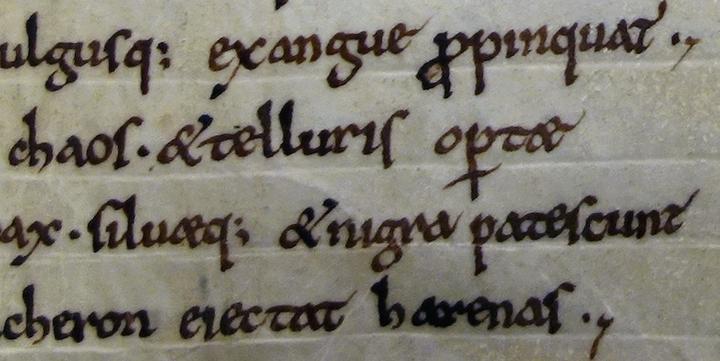 ulgusq; exangue ꝓpinquat.,
chaos. & telluris oꝑtae
ax. siluaeq; & nigra patescunt
cheron eiectat harenas.,